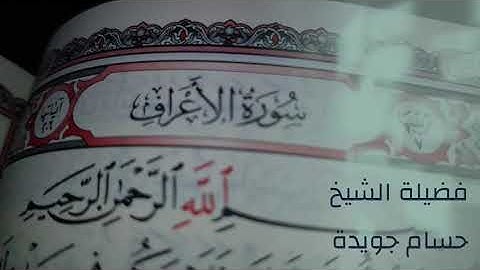 سُورَةُ الأَعْرَافِ
بِسْمِ ٱللَّهِ ٱلرَّحْمَٰنِ ٱلرَّحِيمِ
فضيلة الشيخ
حسام جويدة